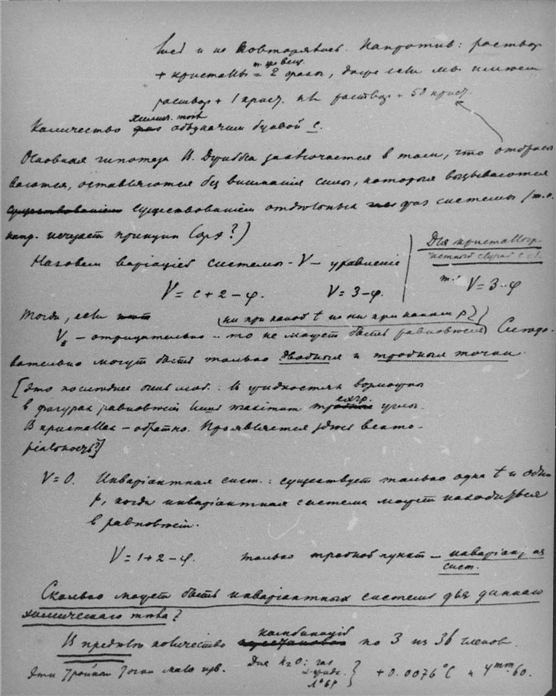 и не повторялось. Напротив: раствор
+ кристаллы = 2 фазы, даже если мы имеем
раствор + 1 крист. или раствор + 50 крист.
Количество химич. тѣл обозначим буквой c.
Основная гипотеза заключается в том, что отбрасы
ваются, оставляются без внимания силы, которыя вызываются
существованием отдѣльных фаз системы (т.о.
напр. исчезает принцип Curie?)
Назовем варіацией системы - V - уравненіе
Для кристаллогр.
частный случай c=1
V = c + 2 - φ. V = 3 - φ.
т.е. V = 3 - φ
Тогда, если
(ни при каком t и ни при каком p)
V - отрицательно - то не может быть равновѣсія. Слѣдо-
вательно могут быть только двойныя и тройныя точки.
[Это послѣднее : В жидкостях
в фигурах равновѣсія углы.
В кристаллах - обратно. Проявляется здѣсь векто-
ріальность?]
V = 0. Инваріантная сист.: существует только одна t и одно
p, когда инваріантная система может находиться
в равновѣсіи.
V = 1 + 2 - φ. только тройной пункт - инваріан[тная
сист.
Сколько может быть инваріантных систем для даннаго
химическаго тѣла?
В предѣлѣ количество комбинацій по 3 из 36 членов.
Эти тройныя точки мало изв. Для H2O: газ
жидк.
лед } + 0.0076°C и 4 mm. 60.